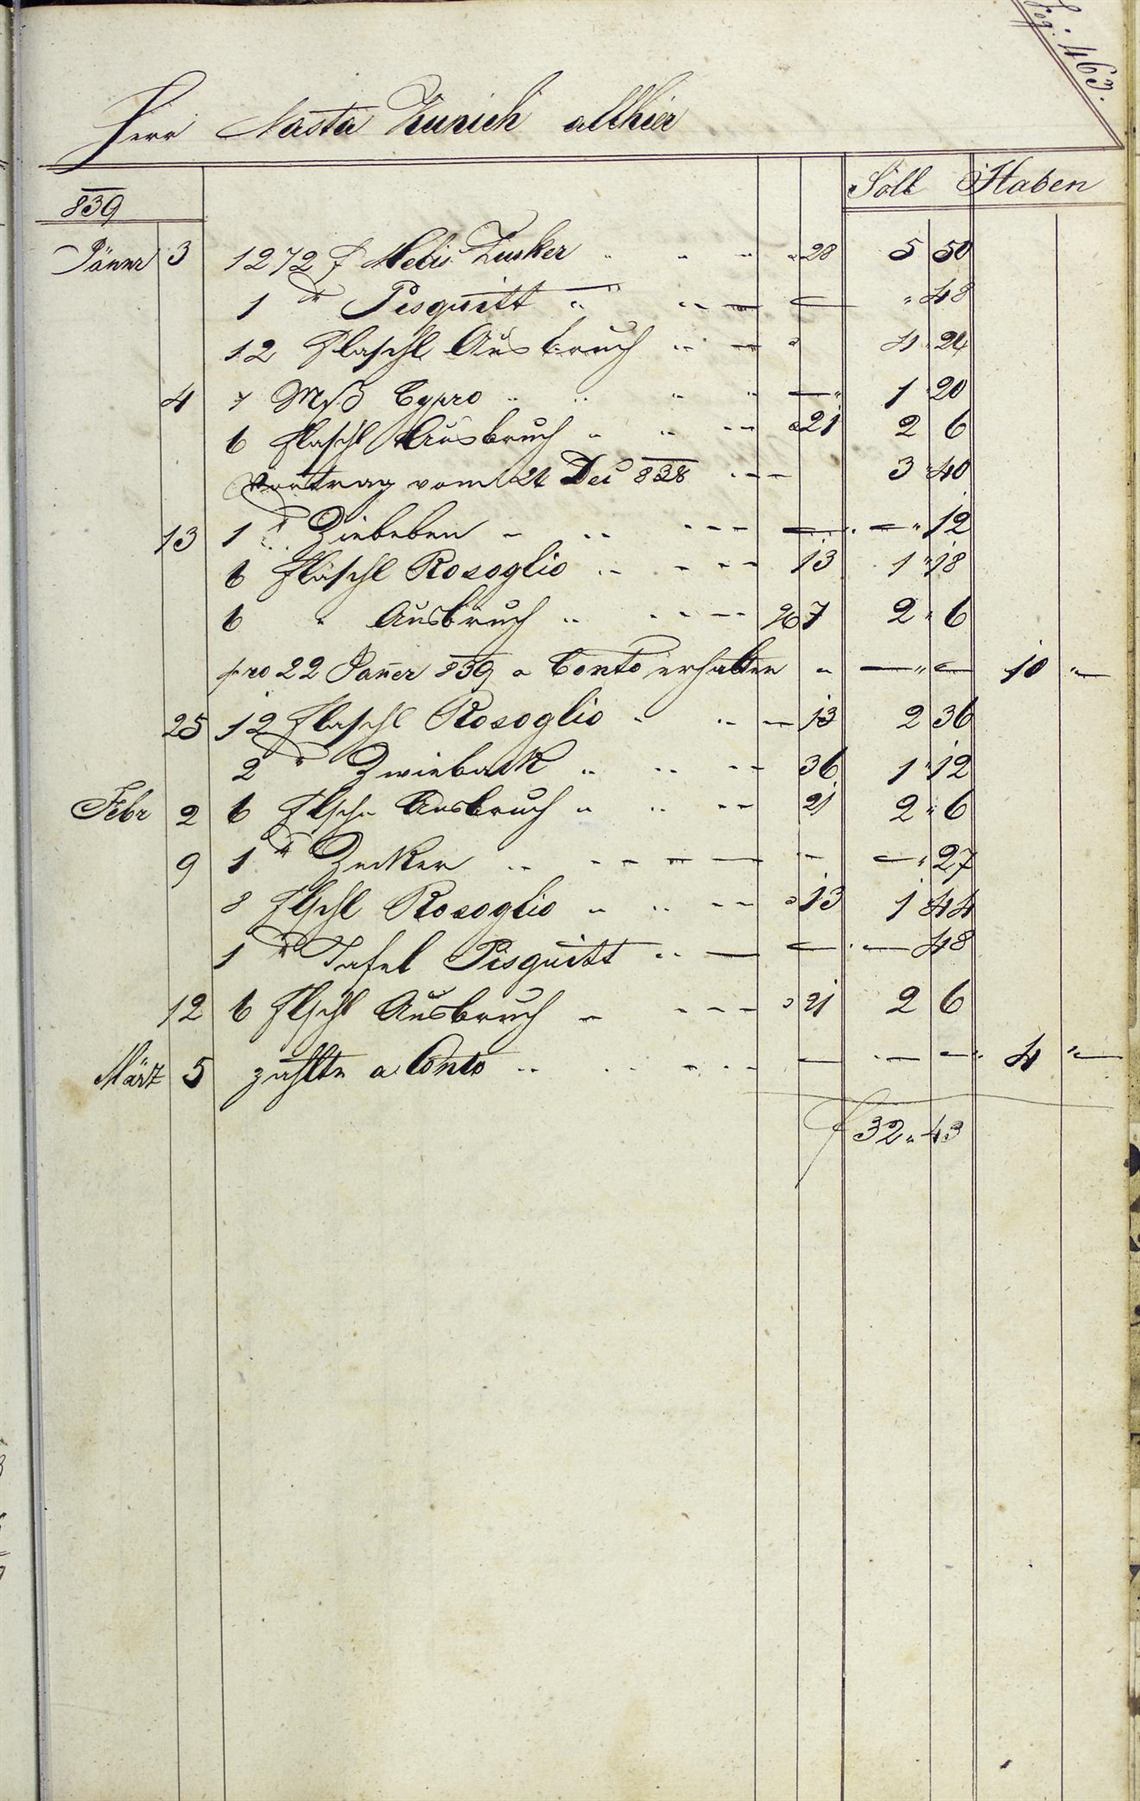 Fog: 463.
Herr Nasta Zunich allhier
Soll Haben
839
Jänner 3 1272 Melis Zucker " 28 5 50
1 ℔ Pisquitt " 48
12 Flaschl Ausbruch 4 24
4 Mß Cypro 1 20
6 Flaschl Ausbruch a 21 2 6
Vortrag vom 24 Dec 838 3 40
13 1 ℔ Ziebeben 12
6 Fläschl Rosoglio 13 1 18
6 " Ausbruch 2 " 6
pro 22 Janer 839 a Conto erhalten 10 "
25 12 Flaschl Rosoglio 13 2 36
2 ℔ Zwieback 36 1 " 12
Febr 2 6 Flsch Ausbruch 21 2 " 6
9 1 ℔ Zucker " 27
8 Flschl Rosoglio " 13 1 44
1 ℔ Tafel Pisquitt 48
12 6 Flschl Ausbruch " 21 2 6
März 5 zahlte a Conto 4 "
f 32 " 43